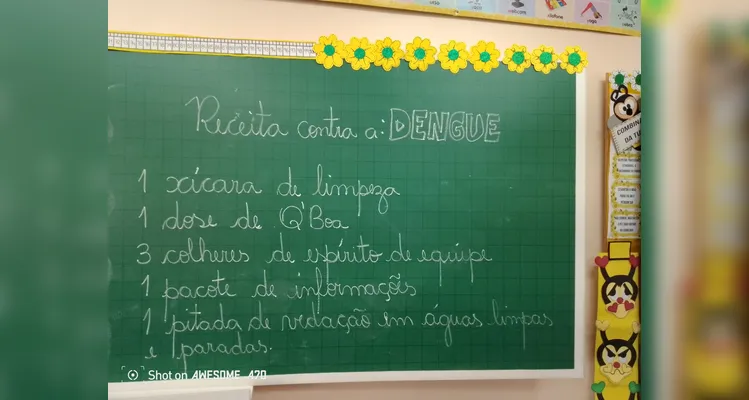 Receita contra a: DENGUE
1 xícara de limpeza
1 dose de Q'Boa
3 colheres de espírito de equipe
1 pacote de informações
1 pitada de vedação em águas limpas
e paradas.
Shot on AWESOME A20
COMBINA
DA TU